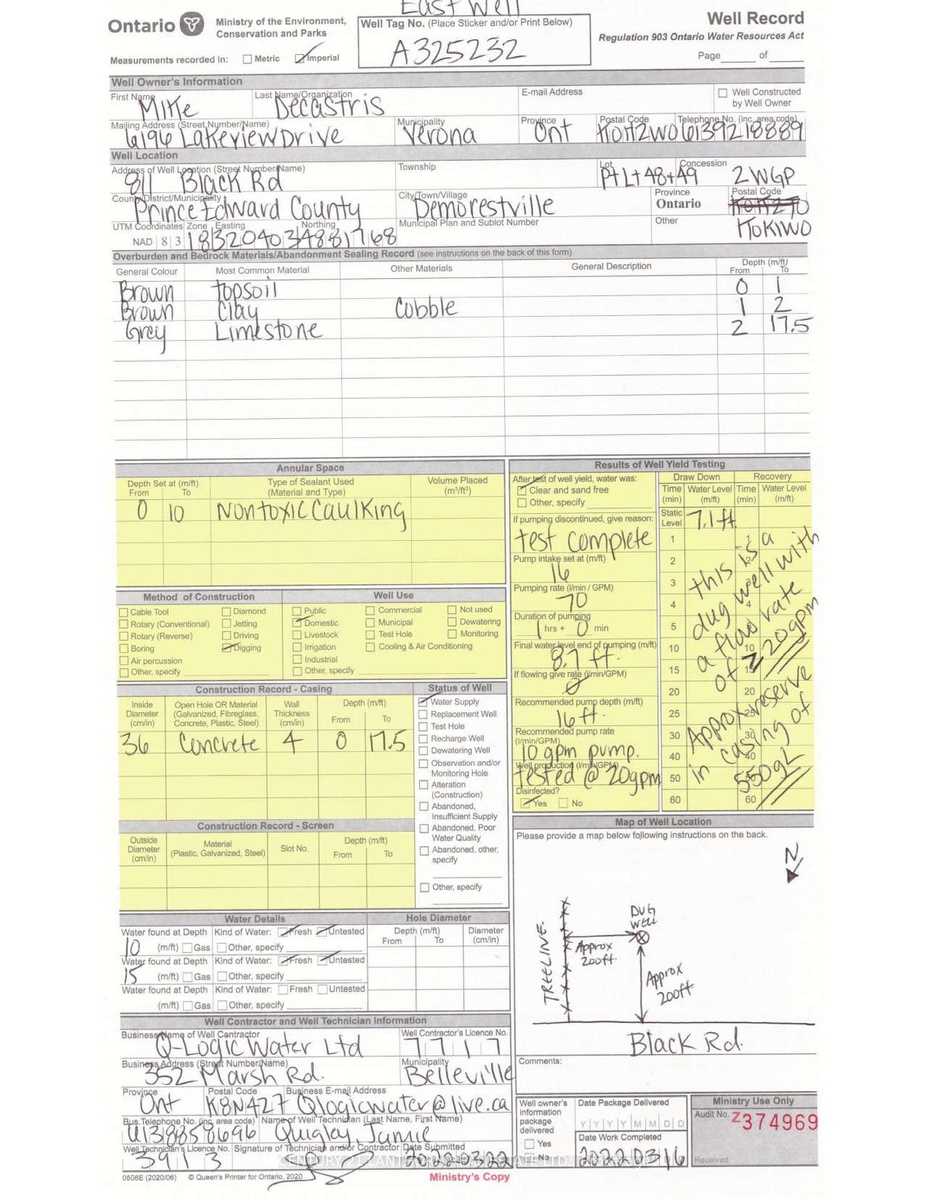 East Well
Ontario
Ministry of the Environment,
Conservation and Parks
Well Tag No. (Place Sticker and/or Print Below)
A325232
Well Record
Regulation 903 Ontario Water Resources Act
Measurements recorded in: Metric Imperial
Page of
Well Owner's Information
First Name Last Name/Organization E-mail Address Well Constructed by Well Owner
Mike Decastris
Mailing Address (Street Number/Name) Municipality Province Postal Code Telephone No. (inc. area code)
6196 Lakeview Drive Verona Ont K0H2W0 6139218889
Well Location
Address of Well Location (Street Number/Name) Township Lot Concession
811 Black Rd Pt Lt 48+49 2WGP
County/District/Municipality City/Town/Village Province Postal Code
Prince Edward County Demorestville Ontario
UTM Coordinates Zone Easting Northing Municipal Plan and Sublot Number Other
NAD 83 18 320403 4881768 K0K1W0
Overburden and Bedrock Materials/Abandonment Sealing Record (see instructions on the back of this form)
General Colour Most Common Material Other Materials General Description Depth (m/ft) From To
Brown topsoil 0 1
Brown Clay Cobble 1 2
Grey Limestone 2 17.5
Annular Space
Depth Set at (m/ft) From To Type of Sealant Used (Material and Type) Volume Placed (m³/ft³)
0 10 Nontoxic Caulking
Method of Construction Well Use
Cable Tool Diamond Public Commercial Not used
Rotary (Conventional) Jetting Domestic Municipal Dewatering
Rotary (Reverse) Driving Livestock Test Hole Monitoring
Boring Digging Irrigation Cooling & Air Conditioning
Air percussion Industrial
Other, specify Other, specify
Construction Record - Casing
Inside Diameter (cm/in) Open Hole OR Material (Galvanized, Fibreglass, Concrete, Plastic, Steel) Wall Thickness (cm/in) Depth (m/ft) From To
36 Concrete 4 0 17.5
Status of Well
Water Supply
Replacement Well
Test Hole
Recharge Well
Dewatering Well
Observation and/or Monitoring Hole
Alteration (Construction)
Abandoned, Insufficient Supply
Abandoned, Poor Water Quality
Abandoned, other, specify
Other, specify
Construction Record - Screen
Outside Diameter (cm/in) Material (Plastic, Galvanized, Steel) Slot No. Depth (m/ft) From To
Water Details
Water found at Depth Kind of Water: Fresh Untested
10 (m/ft) Gas Other, specify
Water found at Depth Kind of Water: Fresh Untested
15 (m/ft) Gas Other, specify
Water found at Depth Kind of Water: Fresh Untested
(m/ft) Gas Other, specify
Hole Diameter
Depth (m/ft) From To Diameter (cm/in)
Well Contractor and Well Technician Information
Business Name of Well Contractor Well Contractor's Licence No.
Q-Logic Water Ltd 7717
Business Address (Street Number/Name) Municipality
352 Marsh Rd. Belleville
Province Postal Code Business E-mail Address
Ont K8N4Z7 Qlogicwater@live.ca
Bus. Telephone No. (inc. area code) Name of Well Technician (Last Name, First Name)
6138858696 Quigley, Jamie
Well Technician's Licence No. Signature of Technician and/or Contractor Date Submitted
3913 20220322
0506E (2020/06) © Queen's Printer for Ontario, 2020
Ministry's Copy
Results of Well Yield Testing
After test of well yield, water was:
Clear and sand free
Other, specify
If pumping discontinued, give reason:
test complete
Pump intake set at (m/ft)
16
Pumping rate (l/min / GPM)
70
Duration of pumping
1 hrs + 0 min
Final water level end of pumping (m/ft)
8.7 ft.
If flowing give rate (l/min/GPM)
0
Recommended pump depth (m/ft)
16 ft.
Recommended pump rate (l/min/GPM)
10 gpm pump.
Well production (l/min/GPM)
tested @ 20gpm
Disinfected?
Yes No
Draw Down Recovery
Time (min) Water Level (m/ft) Time (min) Water Level (m/ft)
Static Level 7.1 ft
1 1
2 2
3
4 4
5
10 10
15 15
20 20
25 25
30 30
40 40
50 50
60 60
this is a
dug well with
a flow rate
of 20gpm
Approx reserve
in casing of
550gL
Map of Well Location
Please provide a map below following instructions on the back.
N
TREELINE
Dug
Well
Approx
200ft
Approx
200ft
Black Rd.
Comments:
Well owner's information package delivered
Yes
No
Date Package Delivered
Y Y Y Y M M D D
Date Work Completed
20220316
Ministry Use Only
Audit No. Z374969
Received